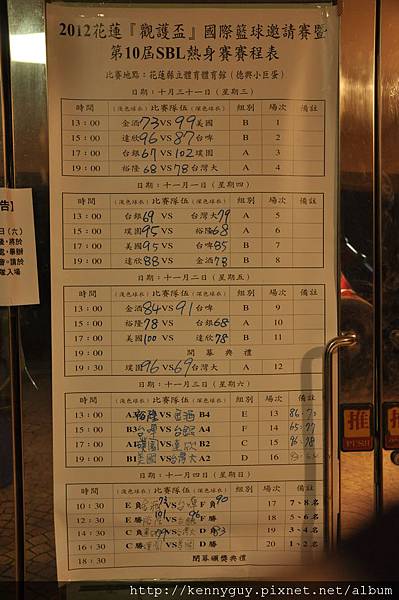 2012花蓮『觀護盃』國際籃球邀請賽暨
第10屆SBL熱身賽賽程表
比賽地點：花蓮縣立體育體育館（德興小巨蛋）
日期：十月三十一日（星期三）
時間 （淺色球衣）比賽隊伍（深色球衣） 組別 場次 備註
13：00 金酒73 VS 99美國 B 1
15：00 達欣96 VS 87台啤 B 2
17：00 台銀67 VS 102璞園 A 3
19：00 裕隆68 VS 78台灣大 A 4
日期：十一月一日（星期四）
時間 （淺色球衣）比賽隊伍（深色球衣） 組別 場次 備註
13：00 台銀69 VS 台灣大79 A 5
15：00 璞園95 VS 裕隆68 A 6
17：00 美國95 VS 台啤85 B 7
19：00 達欣88 VS 金酒78 B 8
日期：十一月二日（星期五）
時間 （淺色球衣）比賽隊伍（深色球衣） 組別 場次 備註
13：00 金酒84 VS 91台啤 B 9
15：00 裕隆78 VS 台銀68 A 10
17：00 美國100 VS 達欣78 B 11
19：00 開幕典禮
19：30 璞園96 VS 69台灣大 A 12
日期：十一月三日（星期六）
時間 （淺色球衣）比賽隊伍（深色球衣） 組別 場次 備註
13：00 A3裕隆 VS 金酒 B4 E 13
15：00 B3台啤 VS 台銀 A4 F 14
17：00 A1璞園 VS 達欣 B2 C 15
19：00 B1美國 VS 台灣大 A2 D 16
日期：十一月四日（星期日）
時間 （淺色球衣）比賽隊伍（深色球衣） 組別 場次 備註
10：30 E負 VS F負 90 17 7、8名
12：30 E勝 101 VS 96 F勝 18 5、6名
14：30 C負 VS D負 19 3、4名
16：30 C勝 VS D勝 20 1、2名
18：30 閉幕頒獎典禮
告】
日（六）
入場
推 推
PUSH
http://kennyguy.pixnet.net/album